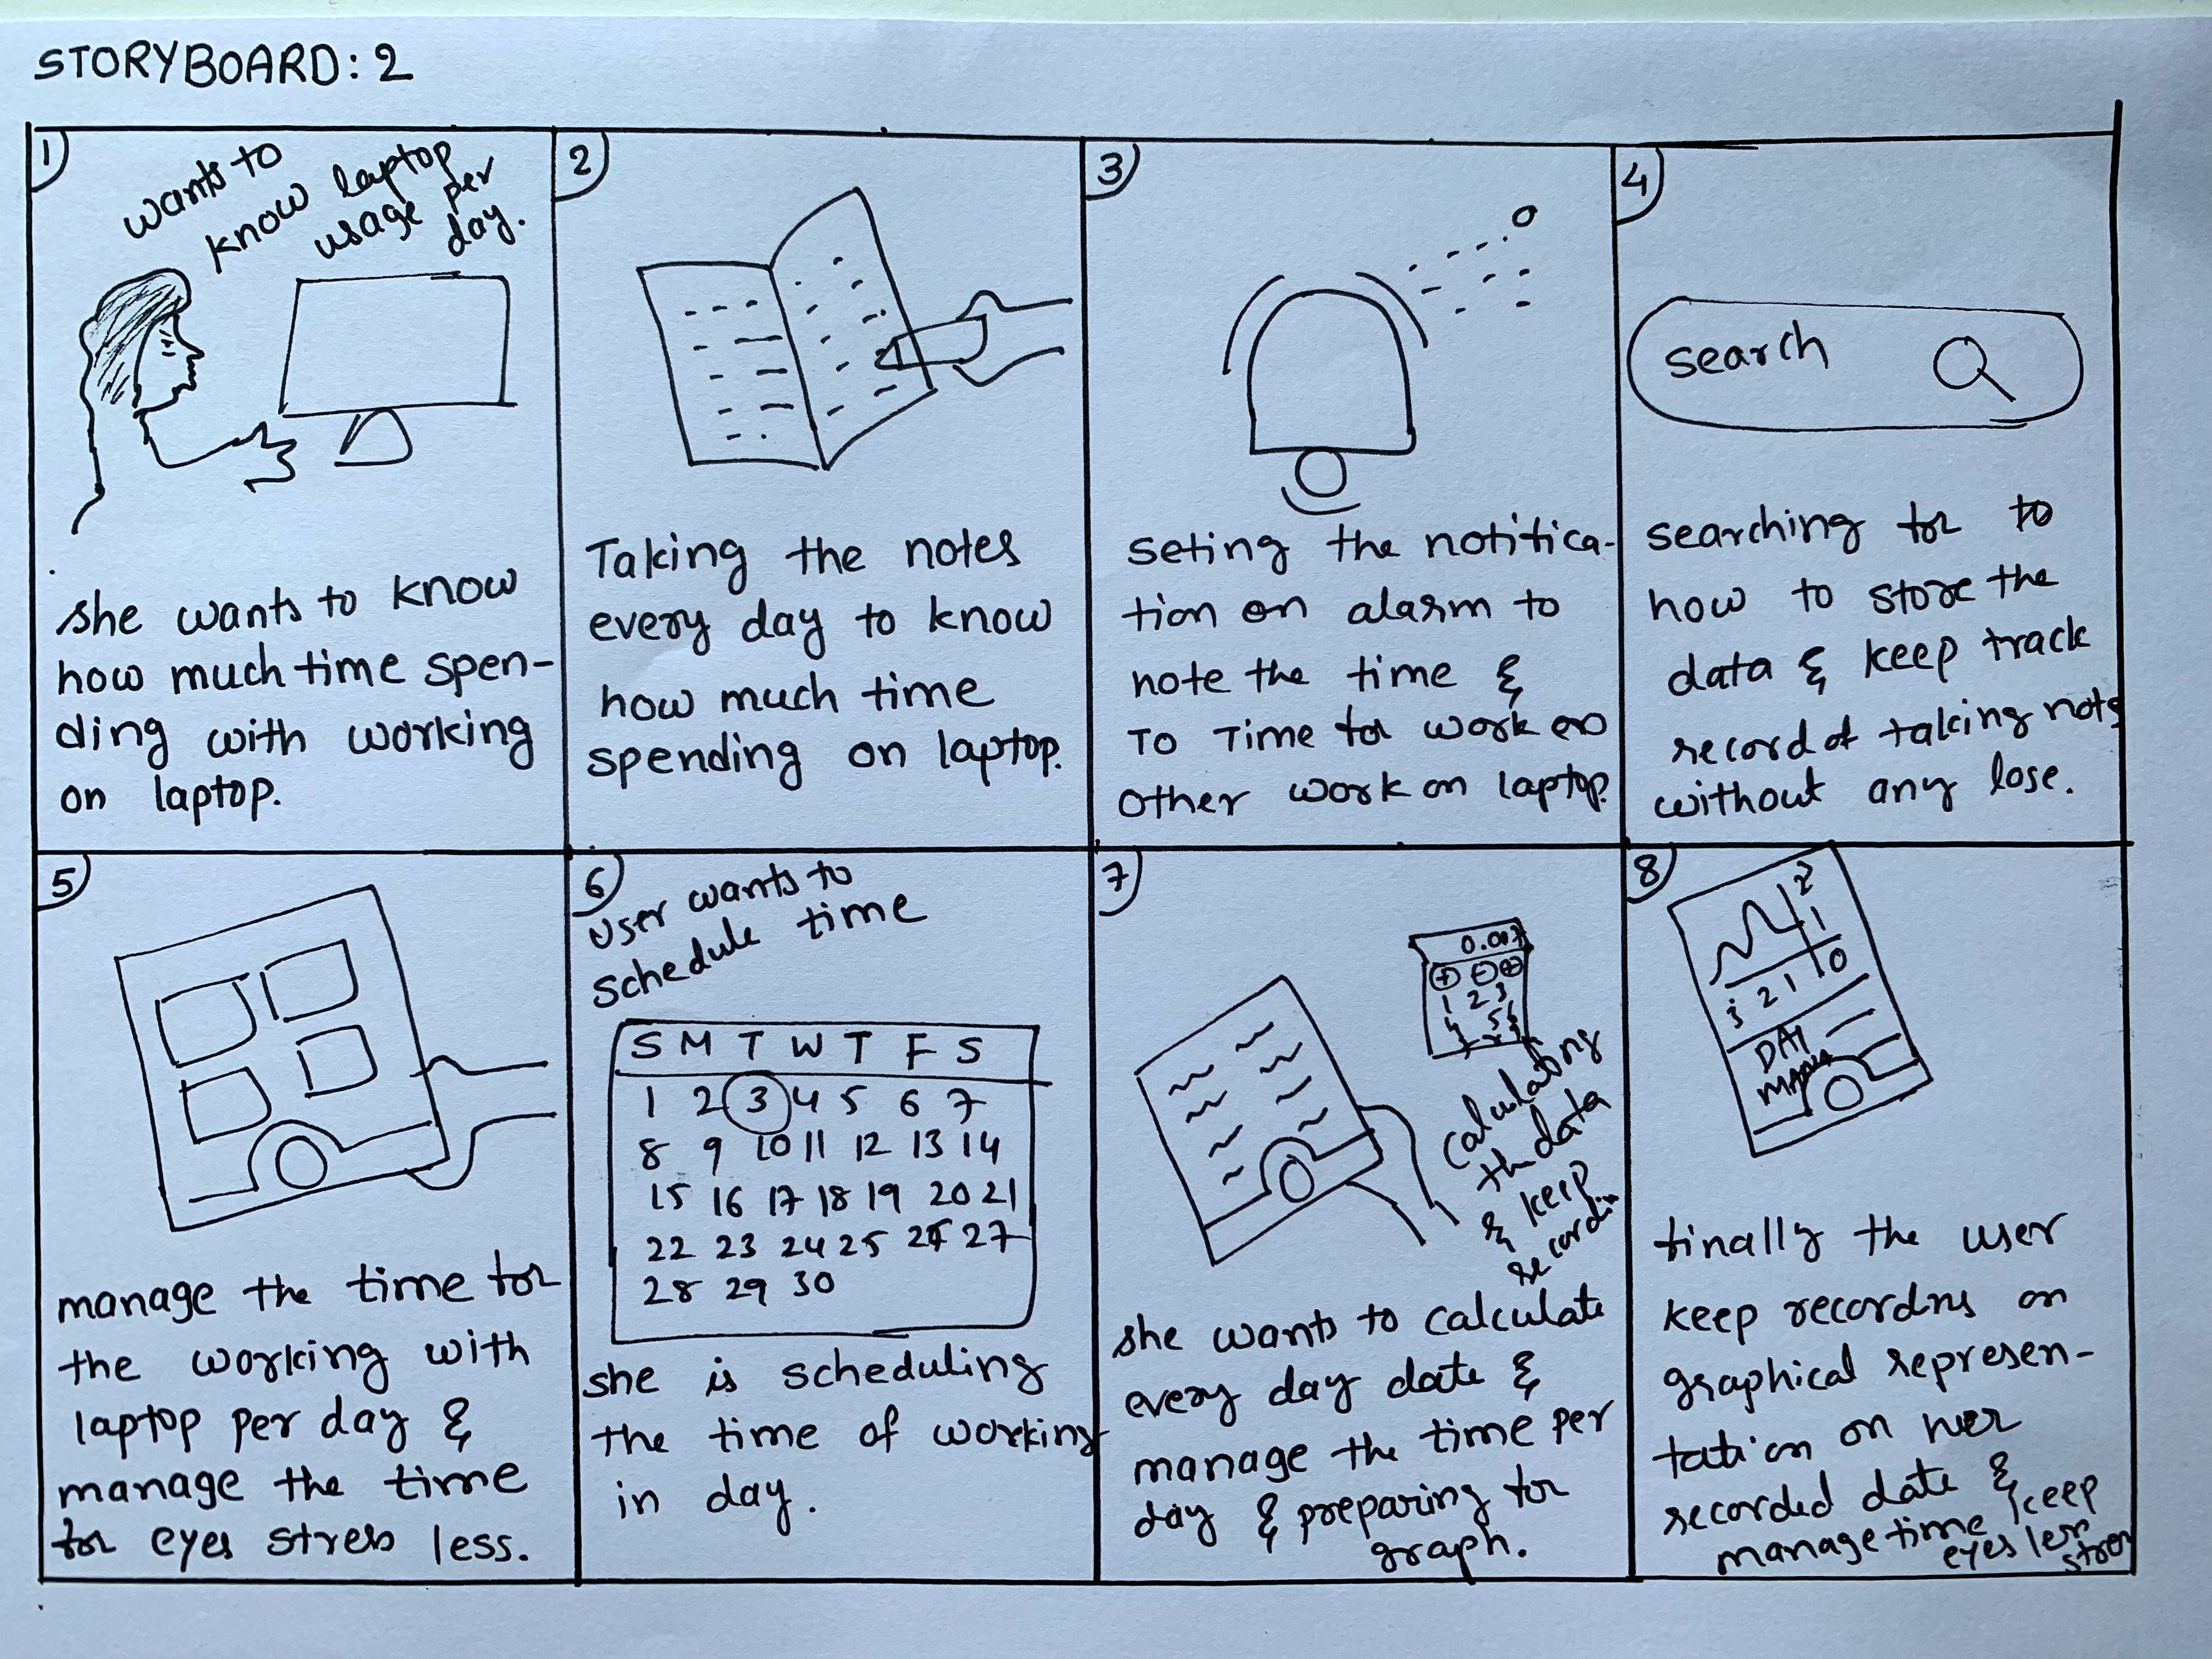 STORYBOARD: 2
1
wants to
know laptop
usage per
day.
she wants to know
how much time spen-
ding with working
on laptop.
2
Taking the notes
every day to know
how much time
spending on laptop.
3
seting the notifica-
tion on alarm to
note the time &
To Time for work on
other work on laptop.
4
search
searching for to
how to store the
data & keep track
record of taking nots
without any lose.
5
manage the time for
the working with
laptop per day &
manage the time
for eyes stress less.
6
User wants to
schedule time
S M T W T F S
1 2 3 4 5 6 7
8 9 10 11 12 13 14
15 16 17 18 19 20 21
22 23 24 25 27
28 29 30
she is scheduling
the time of working
in day.
7
0.007
+ - +
1 2 3
calculating
the data
& keep
she wants to calculate
every day date &
manage the time per
day & preparing for
graph.
8
2
1
3 2 1 0
DAY
finally the user
keep on
graphical represen-
tation on
recorded date &
manage time keep
eyes less
stress